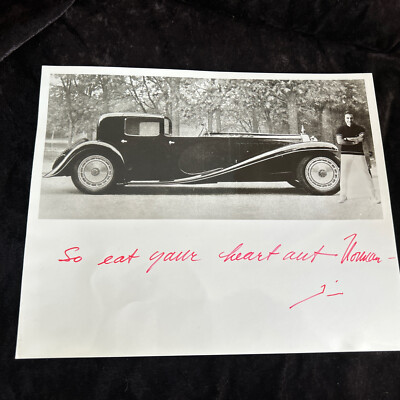 So eat your heart out Norman -
Jim